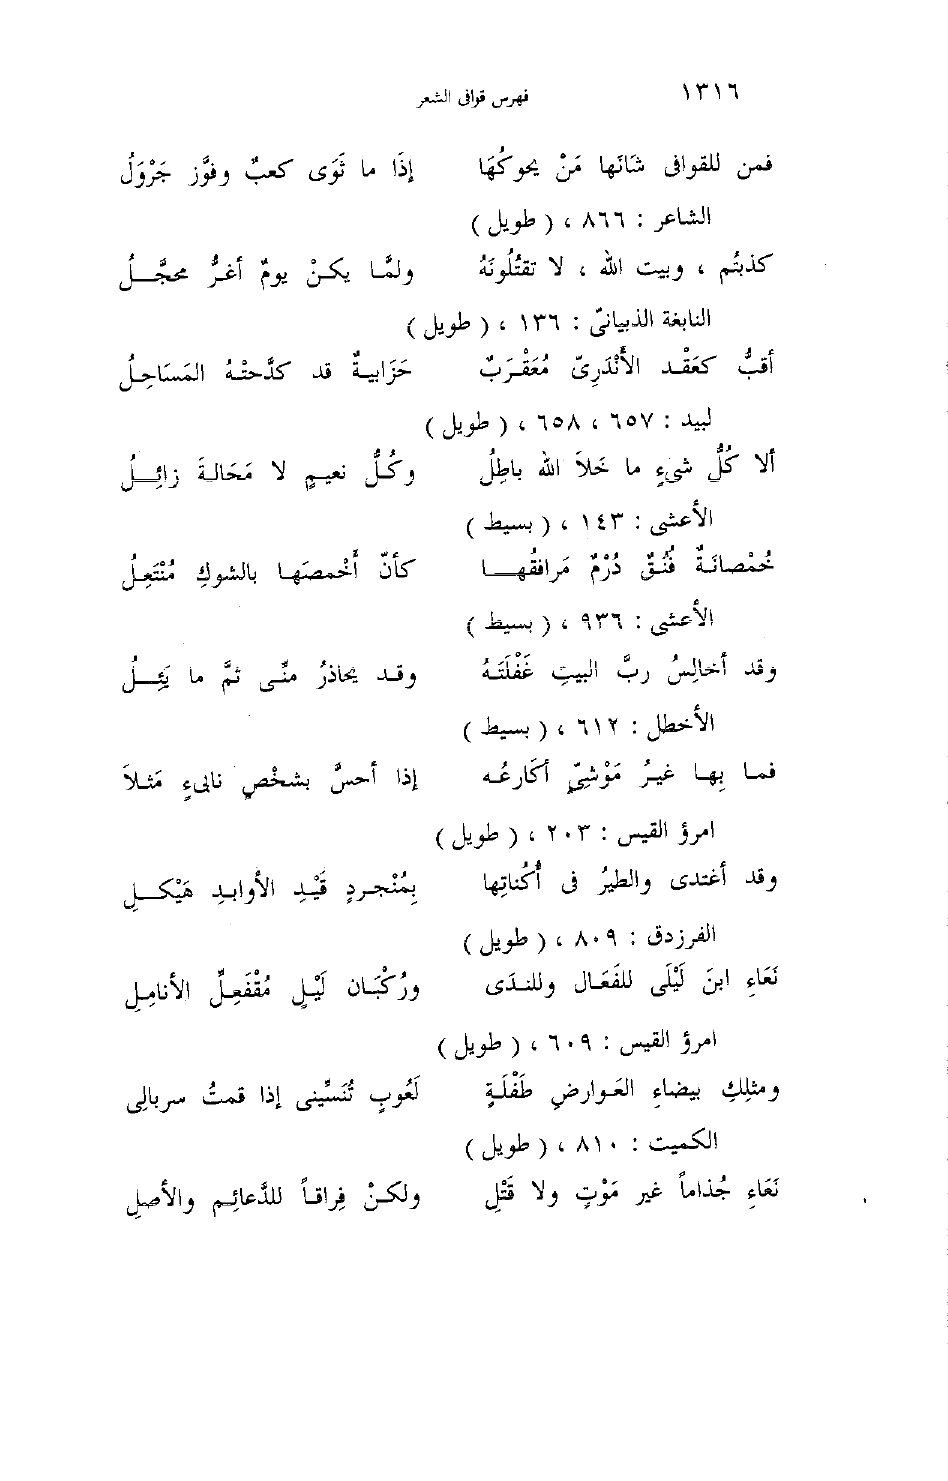 ١٣١٦ فهرس قوافى الشعر
فمن للقوافى شَانَها مَنْ يحوكُهَا إذَا ما ثَوَى كعبٌ وفوَّز جَرْوَلُ
الشاعر : ٨٦٦ ، ( طويل )
كذبتُم ، وبيت الله ، لا تقتُلُونَهُ ولمَّا يكنْ يومٌ أغرُّ محجَّلُ
النابغة الذبيانىّ : ١٣٦ ، ( طويل )
أقبُّ كعَقْد الأَنْدَرِىّ مُعَقْرَبٌ حَزَابيةٌ قد كدَّحتْهُ المَسَاحِلُ
لبيد : ٦٥٧ ، ٦٥٨ ، ( طويل )
ألا كُلُّ شىءٍ ما خَلاَ الله باطِلُ وكُلُّ نعيمٍ لا مَحَالةَ زائِلُ
الأعشى : ١٤٣ ، ( بسيط )
خُمْصانَةٌ فُنُقٌ دُرْمٌ مَرافقُها كأنّ أَخْمصَها بالشوكِ مُنْتَعِلُ
الأعشى : ٩٣٦ ، ( بسيط )
وقد أخالِسُ ربَّ البيتِ غَفْلَتَهُ وقد يحاذرُ منَّى ثمَّ ما يَئِلُ
الأخطل : ٦١٢ ، ( بسيط )
فما بِها غيرُ مَوْشِىّ أكَارعُه إذا أحسَّ بشخْصٍ نابىءٍ مَثلاَ
امرؤ القيس : ٢٠٣ ، ( طويل )
وقد أغتدى والطيرُ فى أُكُناتِها بِمُنْجردٍ قَيْدِ الأوابدِ هَيْكلِ
الفرزدق : ٨٠٩ ، ( طويل )
نَعَاءِ ابنَ لَيْلَى للفَعَال وللنَدَى ورُكْبَان لَيْلٍ مُقْفَعِلِّ الأنامِلِ
امرؤ القيس : ٦٠٩ ، ( طويل )
ومثلِكِ بيضاءِ العَوارضِ طَفْلَةٍ لَعُوبٍ تُنَسِّينى إذا قمتُ سربالِى
الكميت : ٨١٠ ، ( طويل )
نَعَاءِ جُذاماً غير مَوْتٍ ولا قَتْلِ ولكنْ فِراقاً للدَّعائِم والأصلِ